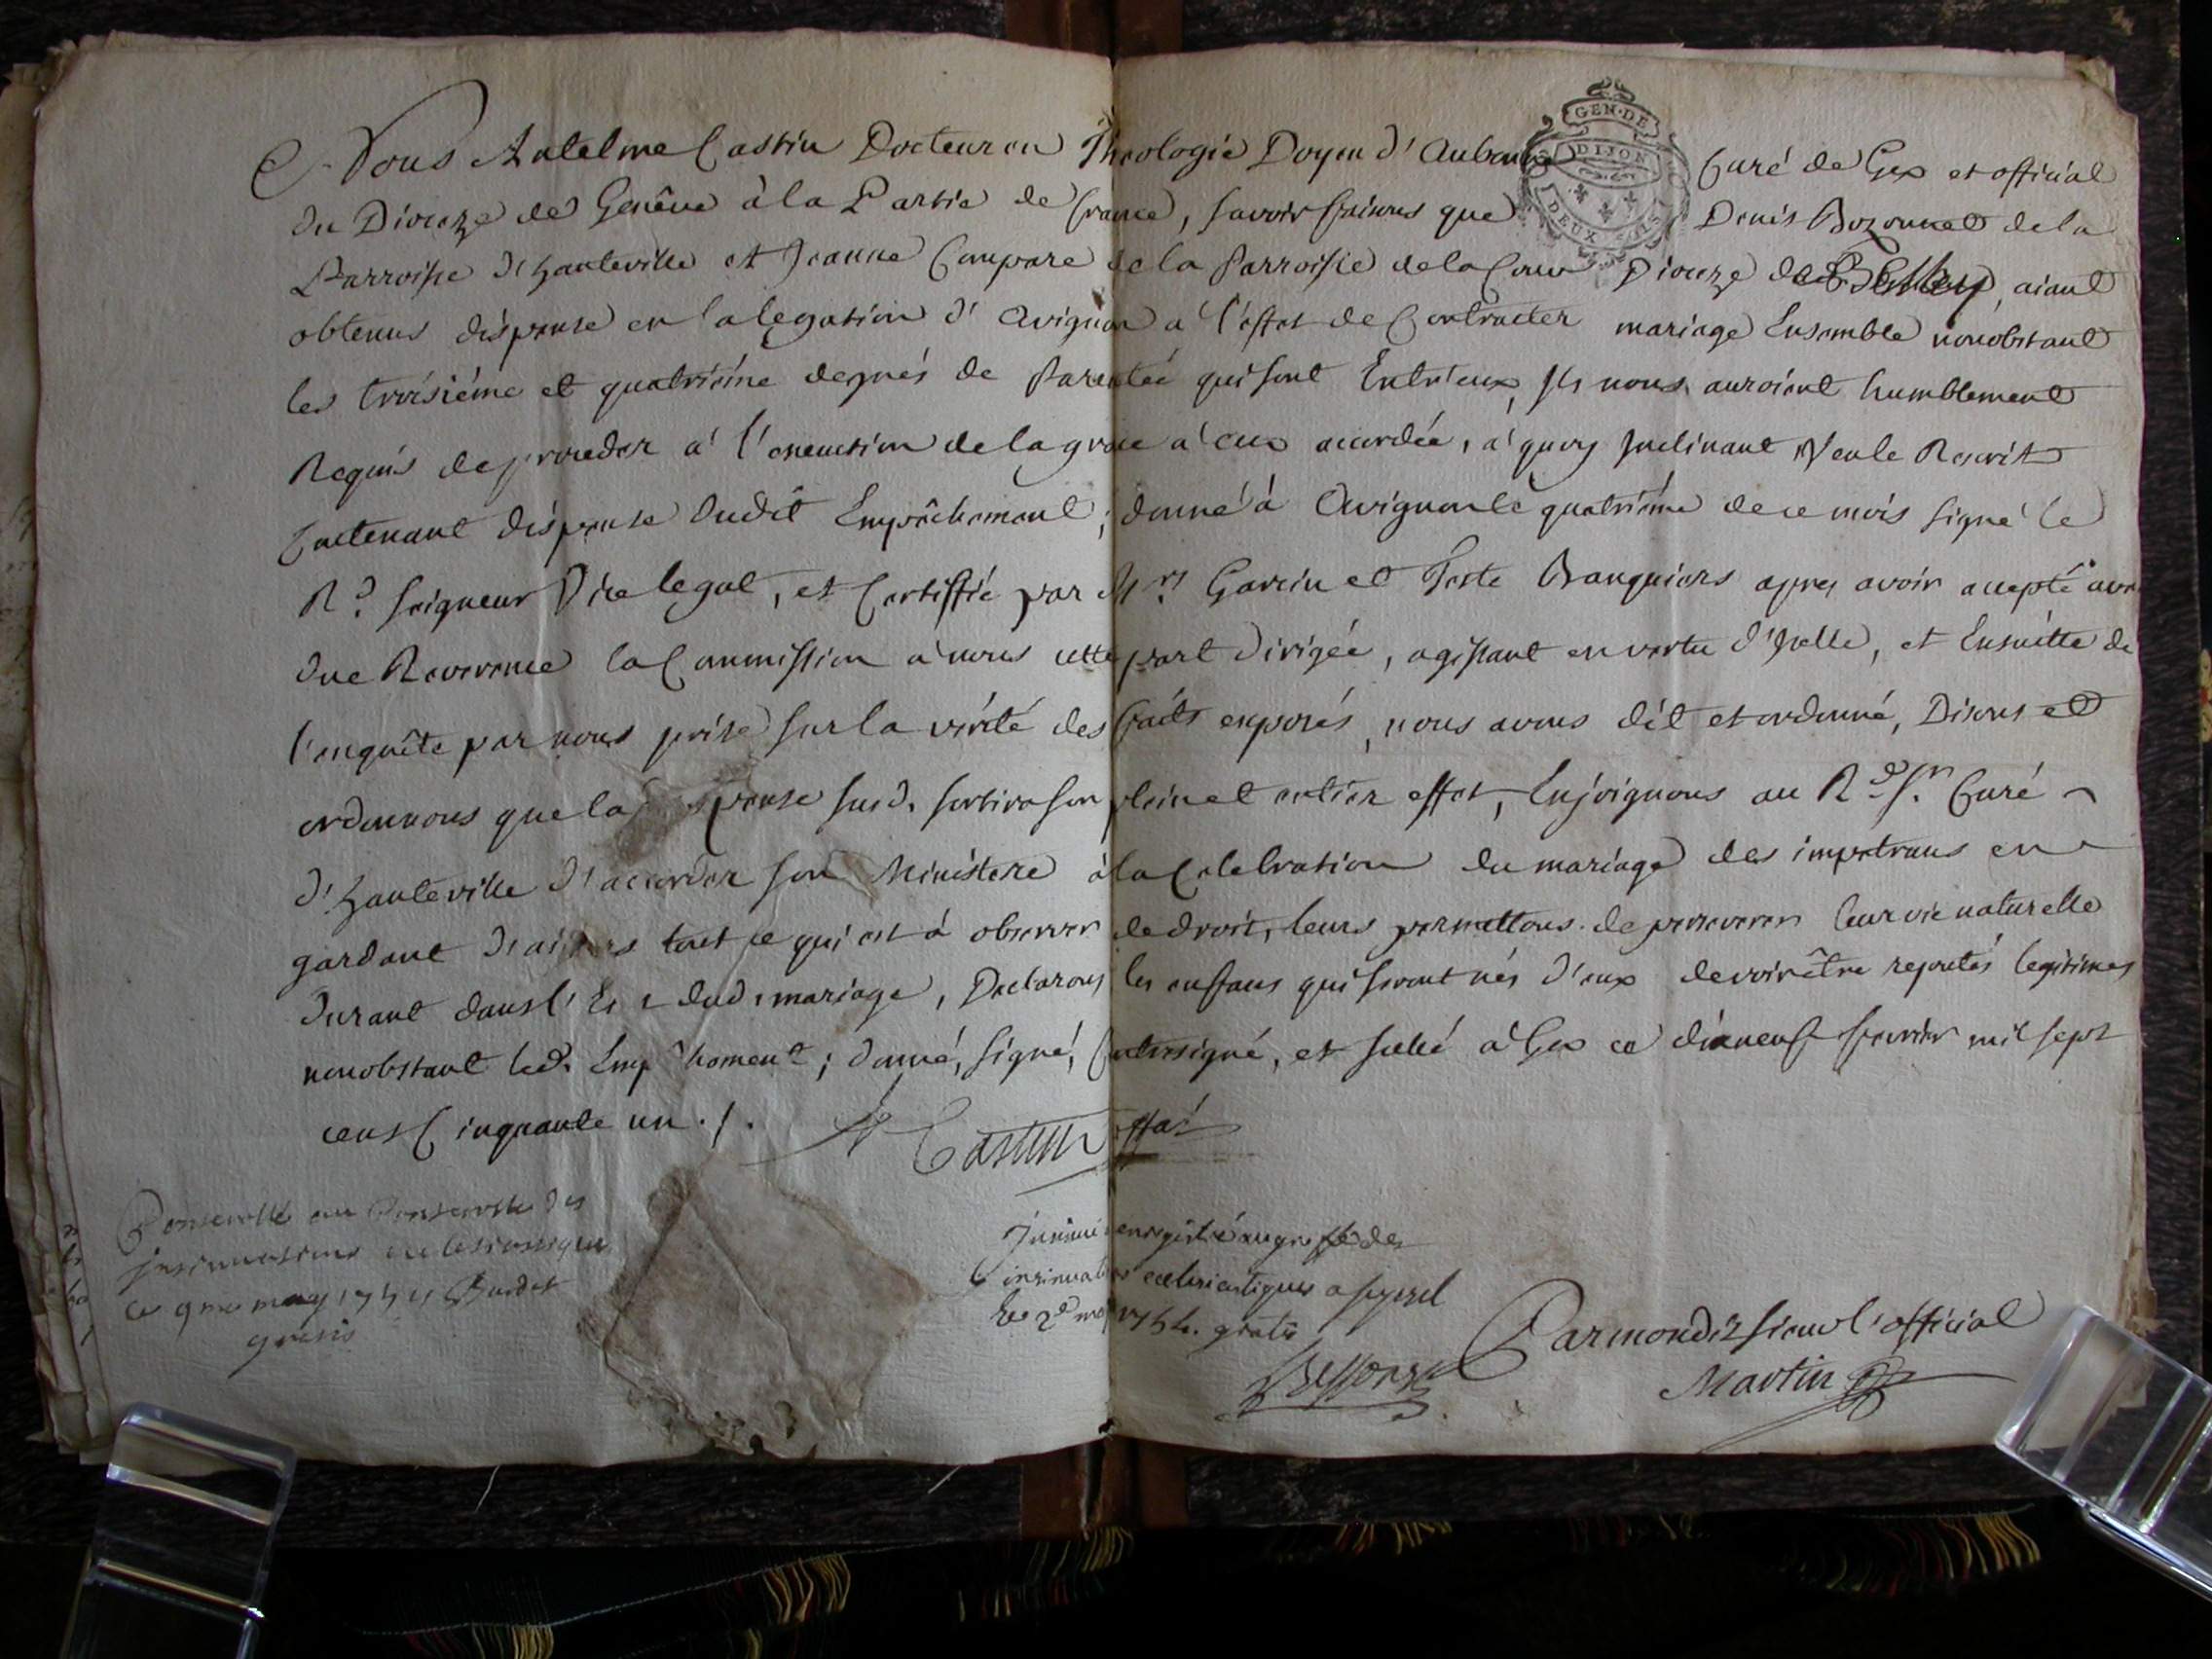 Nous Antelme Castin Docteur en Théologie Doyen d'Aubonne Curé de Gex et official
GEN·DE
DIJON
DEUX
du Dioceze de Genêve à la Partie de france, savoir faisons que Denis Bozonnet de la
Parroisse d'hauteville et Jeanne Compare de la Parroisse de la Cour Dioceze de Belley, aiant
obtenus dispense en la legation d'Avignon a l'effet de Contracter mariage Ensemble nonobstant
les troisiéme et quatriéme degrés de Parentée qui sont Entr'eux, ils nous auroient humblement
Requis de proceder à l'execution de la grace à eux accordée, à quoy Inclinant, Veu le Rescrit
Contenant dispense dudit Empêchement; donné à Avignon le quatriéme de ce mois signé le
Rd. seigneur Vice legat, et Certiffié par Mrs. Garcin et Teste Banquiers apres avoir accepté avec
due Reverence la Commission à nous cette part dirigée, agissant en vertu d'Icelle, et Ensuitte de
l'enquête par nous prise sur la vérité des faits exposés, nous avons dit et ordonné, Disons et
ordonnons que la dispense susd. sortira son plein et entier effet, Enjoignons au Rd. Sr. Curé
d'hauteville d'accorder son Ministere à la Celebration du mariage des impetrans en
gardant d'ailleurs tout ce qui est à observer de droit, leurs permettons de perseverer leur vie naturelle
durant dans l'Et dud. mariage, Declarons les enffans qui seront nés d'eux devoir être reputés legitimes
nonobstant led. Empêchement; donné, signé, Contresigné, et scellé à Gex ce dixneuf fevrier mil sept
cens Cinquante un ./.
A Castin offal
insinuations ecclesiastiques
ce 9me may 1751 Burdet
gratis
Insinué enregistré au greffe des
insinuations ecclesiastiques a seyssel
le 2d may 175 . gratis
Par mondit sieur l'official
Martin